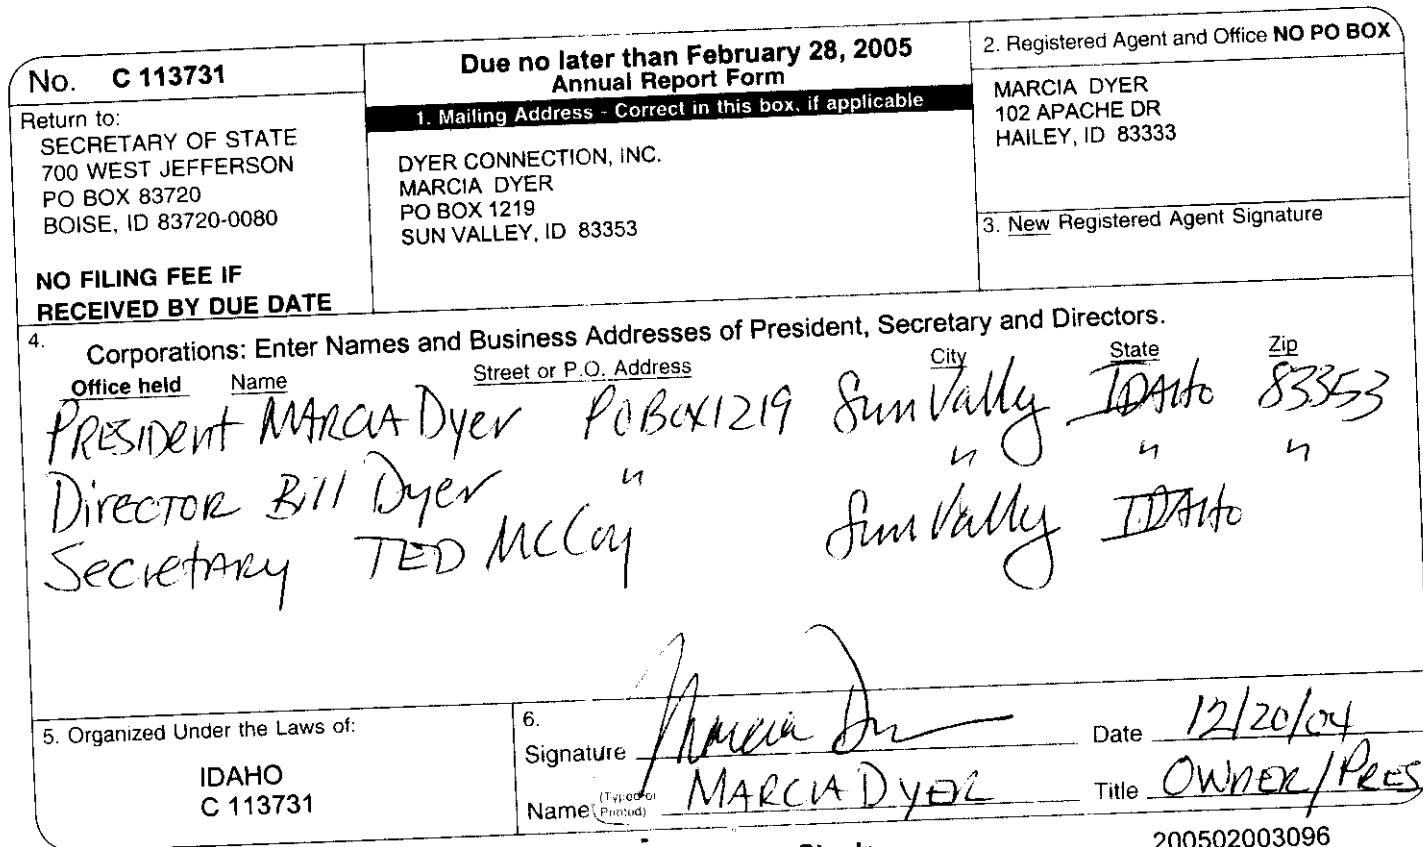 No. C 113731
Return to:
SECRETARY OF STATE
700 WEST JEFFERSON
PO BOX 83720
BOISE, ID 83720-0080
NO FILING FEE IF
RECEIVED BY DUE DATE
Due no later than February 28, 2005
Annual Report Form
1. Mailing Address - Correct in this box, if applicable
DYER CONNECTION, INC.
MARCIA DYER
PO BOX 1219
SUN VALLEY, ID 83353
2. Registered Agent and Office NO PO BOX
MARCIA DYER
102 APACHE DR
HAILEY, ID 83333
3. New Registered Agent Signature
4. Corporations: Enter Names and Business Addresses of President, Secretary and Directors.
Office held Name Street or P.O. Address City State Zip
PRESIDENT MARCIA Dyer PO Box 1219 Sun Vally IDAHO 83353
Director Bill Dyer " " " "
Secretary TED McCoy Sun Vally IDAHO
5. Organized Under the Laws of:
IDAHO
C 113731
6.
Signature Marcia Date 12/20/04
Name (Typed or Printed) MARCIA DYER Title OWNER/PRES
200502003096